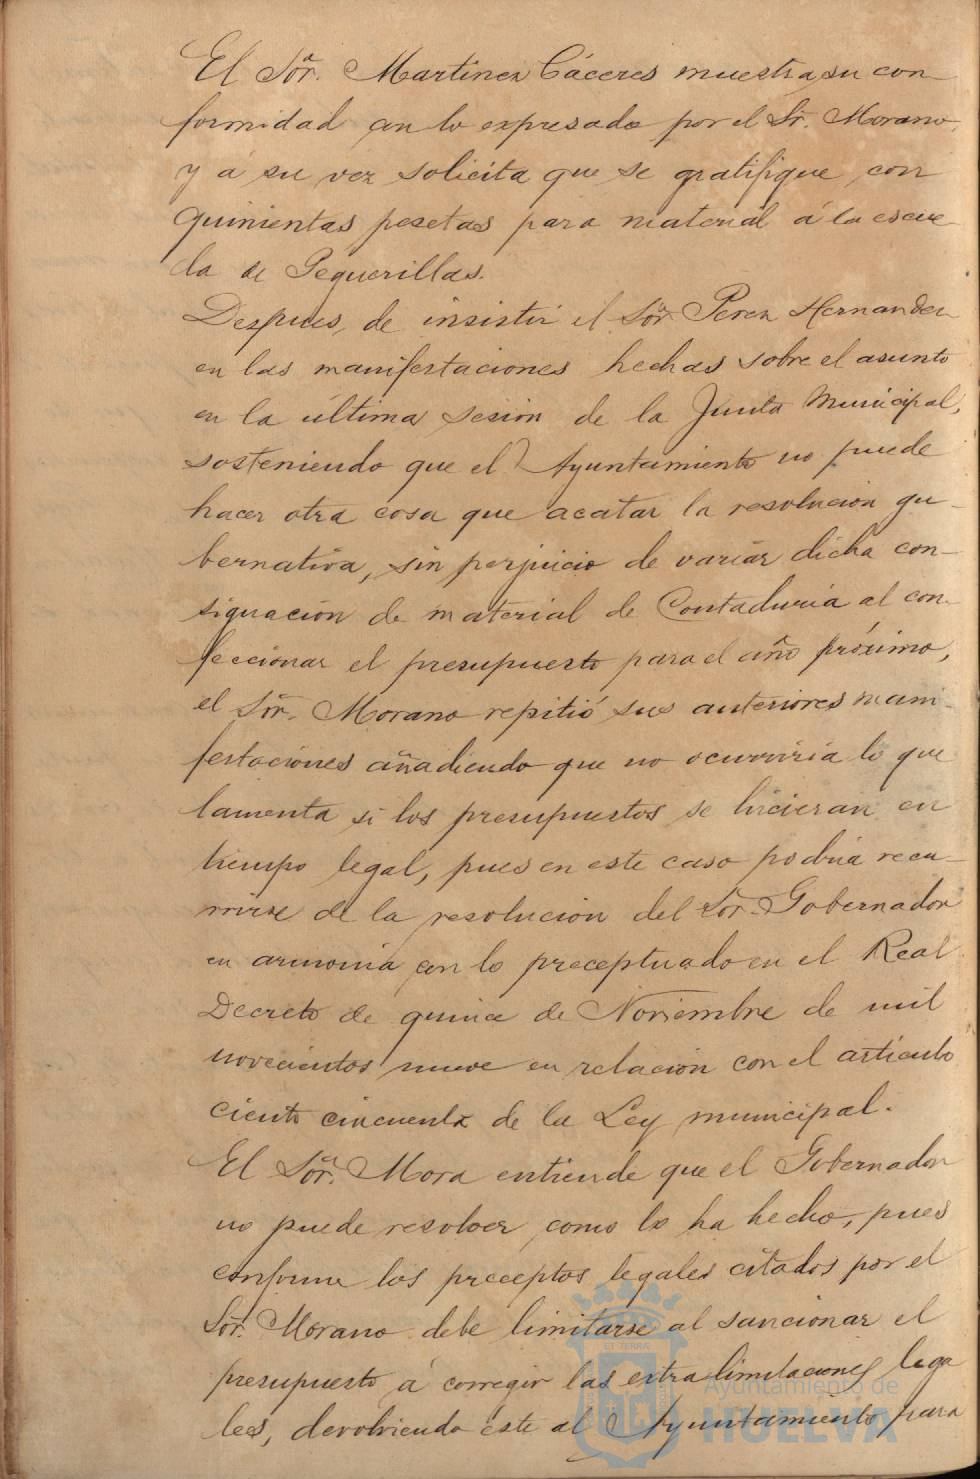 El Sör. Martinez Cáceres muestra su con-
formidad con lo expresado por el Sr. Morano,
y á su vez solicita que se gratifique con
quinientas pesetas para material á la escue-
la de Peguerillas.
Despues de insistir el Sör. Perez Hernandez
en las manifestaciones hechas sobre el asunto
en la última sesion de la Junta Municipal,
sosteniendo que el Ayuntamiento no puede
hacer otra cosa que acatar la resolucion gu-
bernativa, sin perjuicio de variar dicha con-
signacion de material de Contaduria al con-
feccionar el presupuesto para el año próximo,
el Sör. Morano repitió sus anteriores mani-
festaciones añadiendo que no ocurriria lo que
lamenta si los presupuestos se hicieran en
tiempo legal, pues en este caso podria recu-
rrirse de la resolucion del Sör. Gobernador
en armonia con lo preceptuado en el Real
Decreto de quince de Noviembre de mil
novecientos nueve en relacion con el articulo
ciento cincuenta de la Ley municipal.
El Sör. Mora entiende que el Gobernador
no puede resolver como lo ha hecho, pues
conforme los preceptos legales citados por el
Sör. Morano debe limitarse al sancionar el
presupuesto á corregir las extralimitaciones lega
les, devolviendo este al Ayuntamiento para
Ayuntamiento de
HUELVA